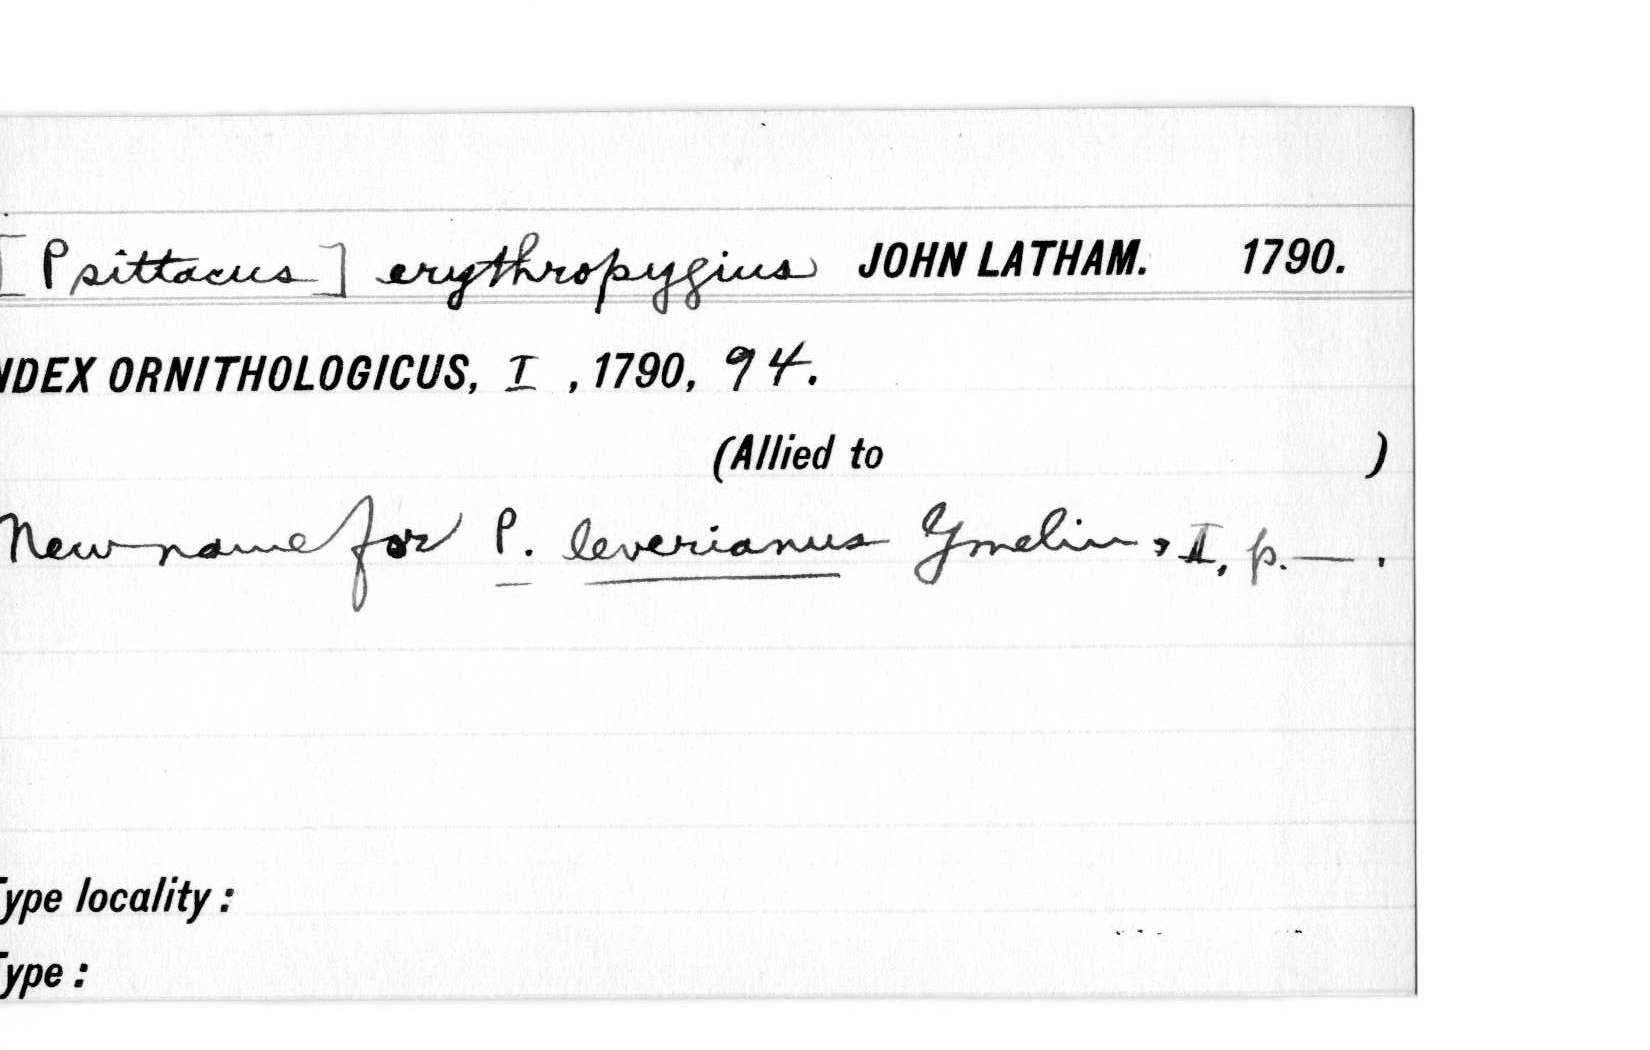 [Psittacus] erythropygius JOHN LATHAM. 1790.
NDEX ORNITHOLOGICUS, I , 1790, 94.
(Allied to )
New name for P. leverianus Gmelin, II, p. — .
Type locality :
Type :